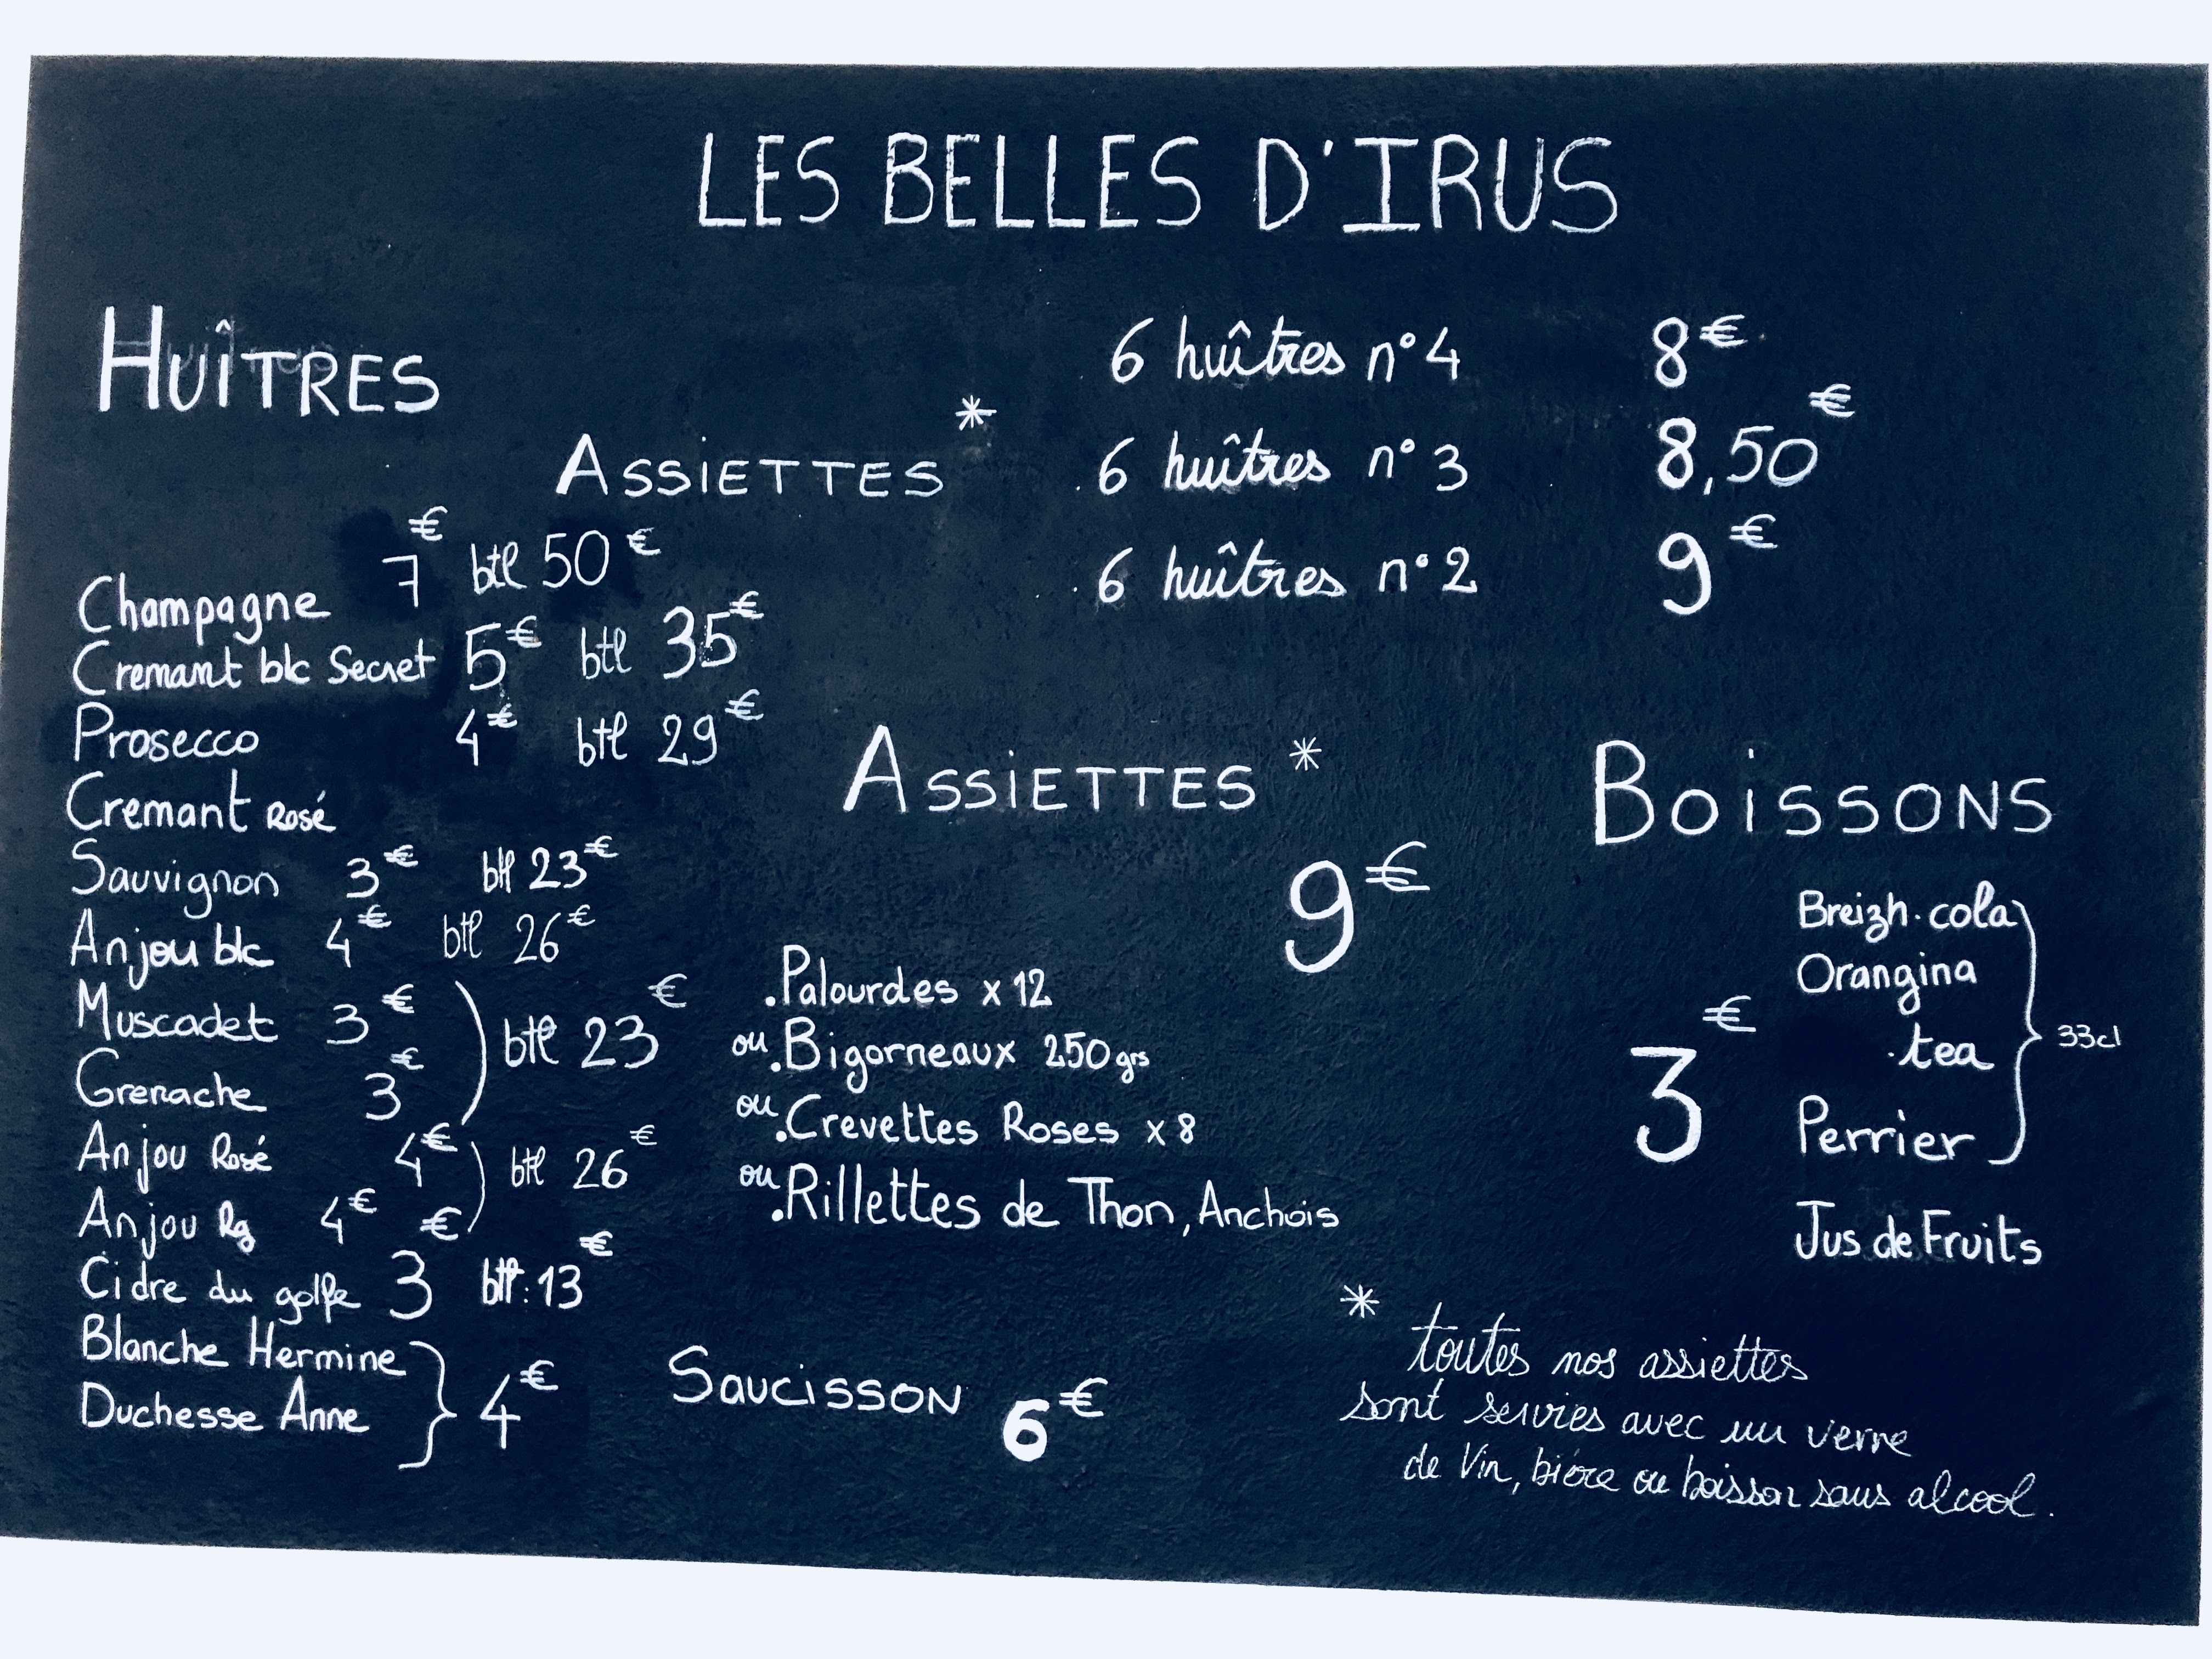 LES BELLES D'IRUS
HUÎTRES
ASSIETTES *
6 huîtres n°4 8€
. 6 huîtres n°3 8,50€
. 6 huîtres n°2 9€
Champagne 7€ btl 50€
Cremant blc Secret 5€ btl 35€
Prosecco 4€ btl 29€
Cremant Rosé
Sauvignon 3€ btl 23€
Anjou blc 4€ btl 26€
Muscadet 3€
Grenache 3€
btl 23€
Anjou Rosé 4€
Anjou Rg 4€
btl 26€
Cidre du golfe 3€ btl: 13€
Blanche Hermine
Duchesse Anne
4€
ASSIETTES *
9€
. Palourdes x 12
ou . Bigorneaux 250 grs
ou . Crevettes Roses x 8
ou . Rillettes de Thon, Anchois
SAUCISSON 6€
BOISSONS
3€
Breizh.cola
Orangina
.tea
Perrier
33cl
Jus de Fruits
* toutes nos assiettes
sont servies avec un verre
de Vin, bière ou boisson sans alcool.